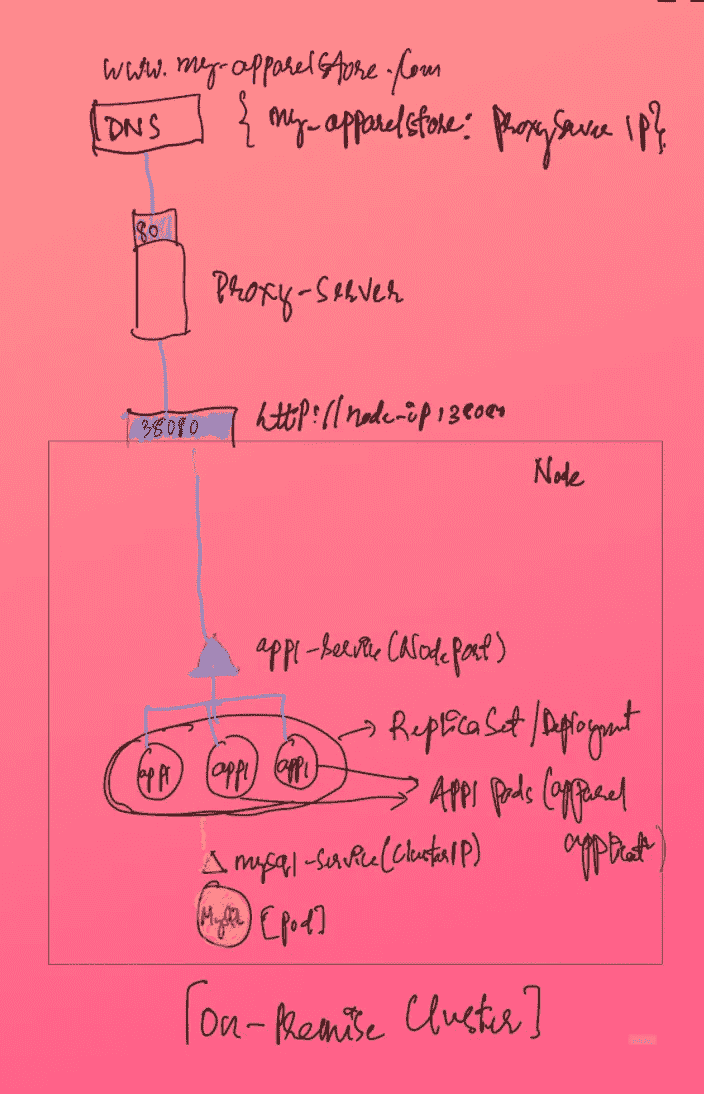 www.my-apparelstore.com
DNS { my-apparelstore: ProxyServer IP}
80
Proxy-Server
38080 http://node-ip:38080
Node
app1-service (NodePort)
ReplicaSet/Deployment
app1 app1 app1
App1 pods (apparel
mysql-service (ClusterIP)
MySQL [pod]
[On-Premise Cluster]